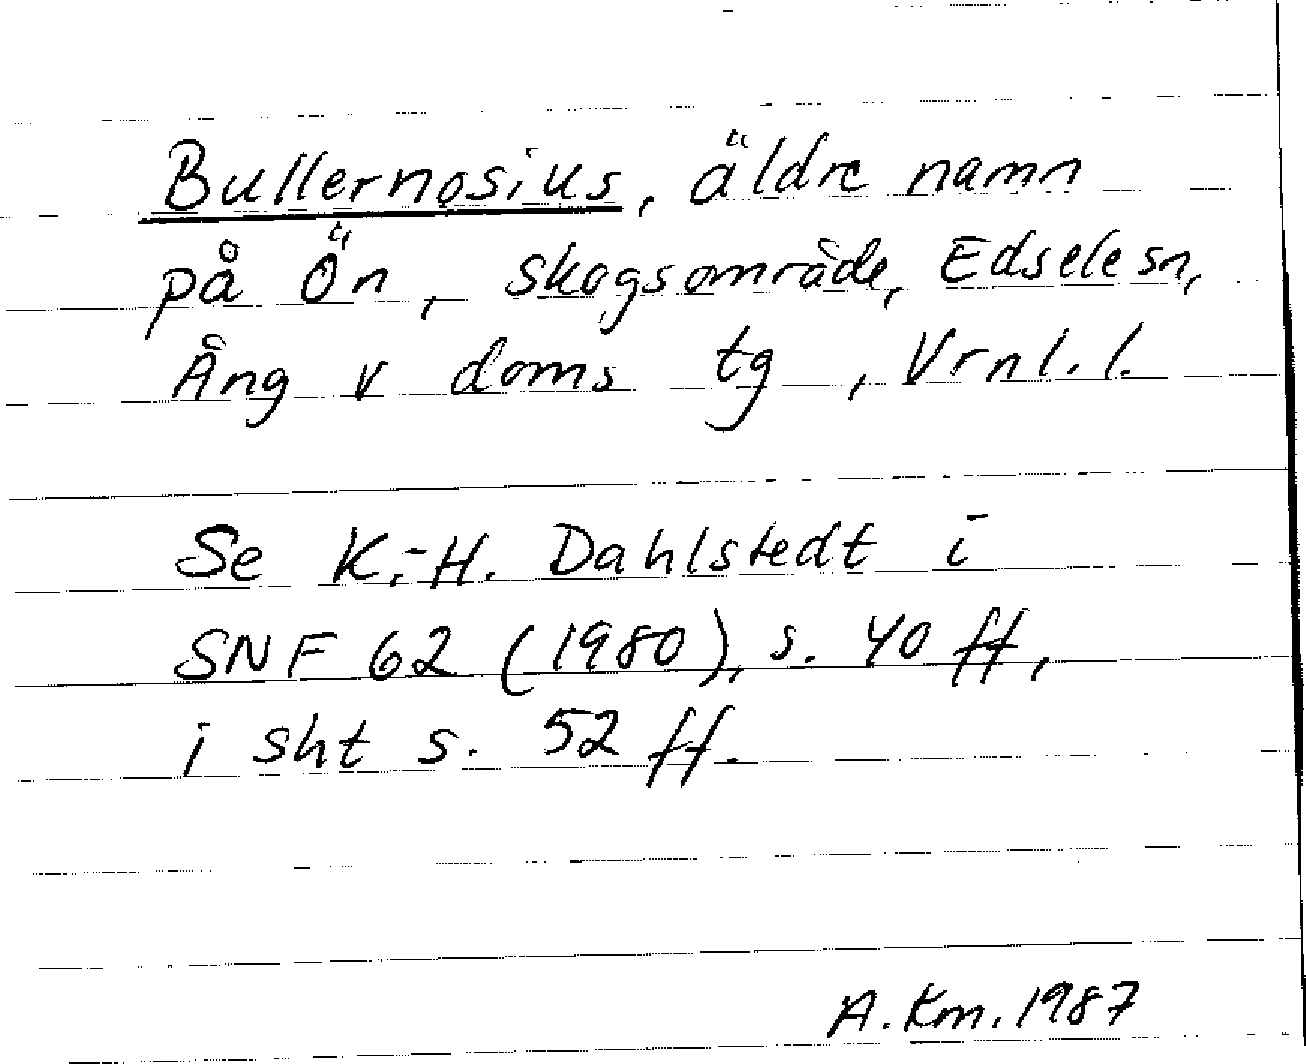 Bullernosius, äldre namn
på Ön, skogsområde, Edsele sn,
Ång v doms tg, Vrnl. l.
Se K.-H. Dahlstedt i
SNF 62 (1980), s. 40 ff,
i sht s. 52 ff.
A. Km. 1987